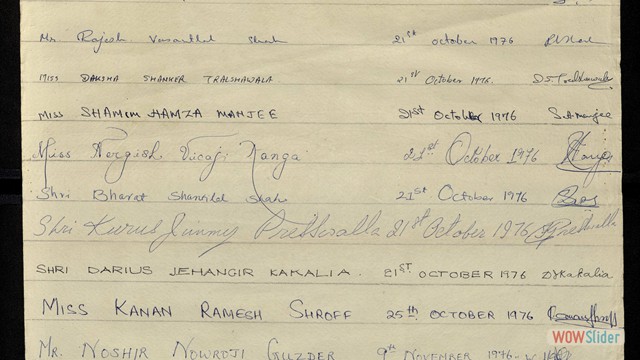 Mr. Rajesh Vasantlal Shah 21st October 1976 R V Shah
Miss DAKSHA SHANKER TRALSHAWALA 21st October 1976.
Miss SHAMIM HAMZA MANJEE 21st October 1976 S.H.Manjee
Miss Nergish Vicaji Nanga 21st October 1976
Shri Bharat Shantilal Shah 21st October 1976
Shri Kurus Jimmy Pressvalla 21st October 1976 Pressvalla
SHRI DARIUS JEHANGIR KAKALIA. 21ST OCTOBER 1976 DJKakalia
MISS KANAN RAMESH SHROFF 25th OCTOBER 1976
MR. NOSHIR NOWROJI GUZDER 9th NOVEMBER 1976
WOWSlider